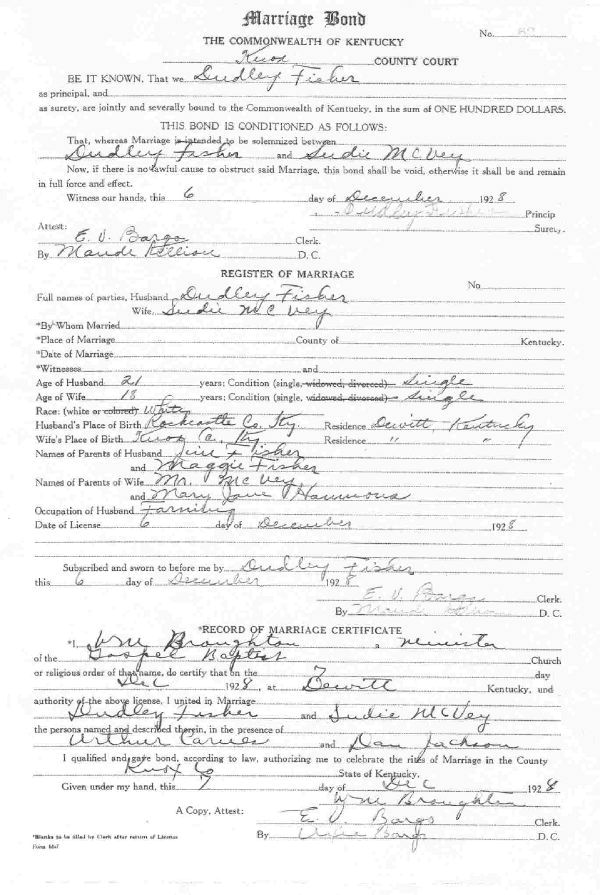 Marriage Bond
No.
THE COMMONWEALTH OF KENTUCKY
Knox COUNTY COURT
BE IT KNOWN, That we Dudley Fisher
as principal, and
as surety, are jointly and severally bound to the Commonwealth of Kentucky, in the sum of ONE HUNDRED DOLLARS.
THIS BOND IS CONDITIONED AS FOLLOWS:
That, whereas Marriage is intended to be solemnized between
Dudley Fisher and Sudie McVey
Now, if there is no lawful cause to obstruct said Marriage, this bond shall be void, otherwise it shall be and remain
in full force and effect.
Witness our hands, this 6 day of December 1928
Dudley Fisher Princip
Surety.
Attest:
E. V. Bargo Clerk.
By Maude D. C.
REGISTER OF MARRIAGE
No
Full names of parties, Husband Dudley Fisher
Wife, Sudie McVey
*By Whom Married
*Place of Marriage County of Kentucky.
*Date of Marriage
*Witnesses and
Age of Husband 21 years; Condition (single, widowed, divorced) Single
Age of Wife 18 years; Condition (single, widowed, divorced) Single
Race: (white or colored) White
Husband's Place of Birth Rockcastle Co. Ky. Residence Dewitt, Kentucky
Wife's Place of Birth Knox Co. Ky Residence " "
Names of Parents of Husband Jim F Fisher
and Maggie Fisher
Names of Parents of Wife Mr. McVey
and Mary Jane Hammons
Occupation of Husband Farming
Date of License 6 day of December 1928
Subscribed and sworn to before me by Dudley Fisher
this 6 day of December 1928
E. V. Bargo Clerk.
By Maude D. C.
*RECORD OF MARRIAGE CERTIFICATE
*I, Wm Broughton, a minister
of the Gospel Baptist Church
or religious order of that name, do certify that on the 7 day
Dec 1928, at Dewitt Kentucky, und
authority of the above license, I united in Marriage
Dudley Fisher and Sudie McVey
the persons named and described therein, in the presence of
Arthur and Dan Jackson
I qualified and gave bond, according to law, authorizing me to celebrate the rites of Marriage in the County
Knox Co State of Kentucky.
Given under my hand, this 7 day of Dec 1928
Wm Broughton
A Copy, Attest: E. V. Bargo Clerk.
By Bargo D. C.
*Blanks to be filled by Clerk after return of License